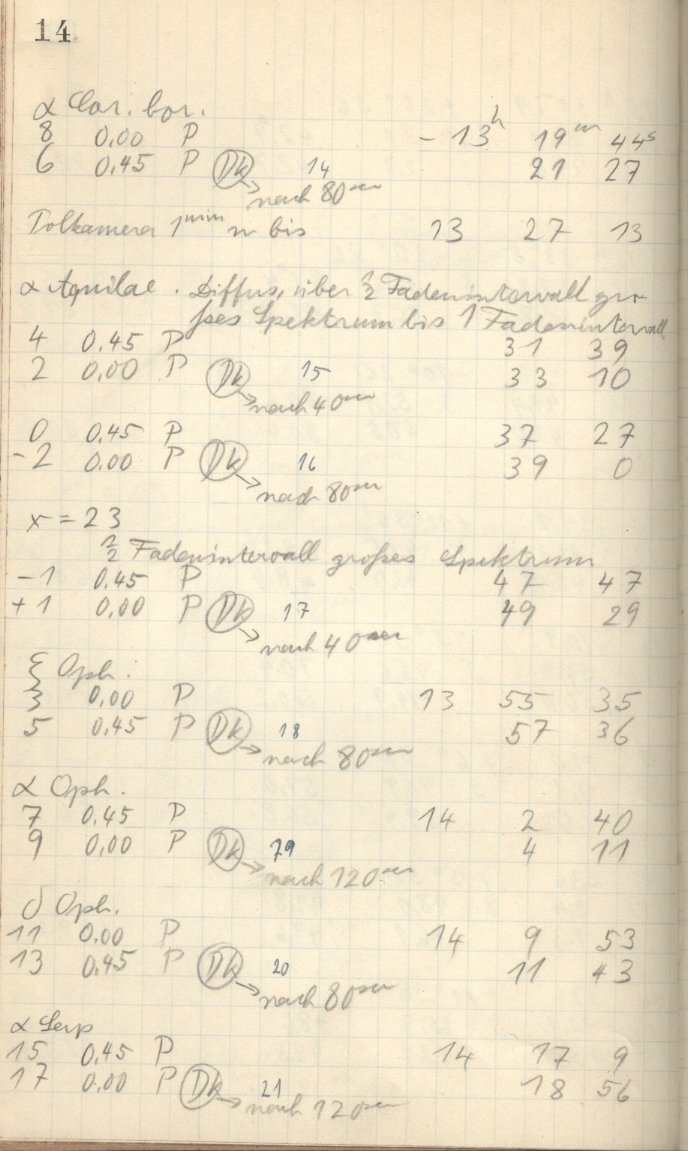 14
α Cor. bor.
8 0.00 P - 13h 19m 44s
6 0.45 P Dk 14 21 27
→ nach 80sec
Polkamera 1min n bis 13 27 13
α Aquilae. Diffus, über 1/2 Fadenintervall gro-
ßes Spektrum bis 1 Fadenintervall
4 0.45 P 31 39
2 0.00 P Dk 15 33 10
→ nach 40sec
0 0.45 P 37 27
-2 0.00 P Dk 16 39 0
→ nach 80sec
x = 23
1/2 Fadenintervall großes Spektrum
-1 0.45 P 47 47
+1 0.00 P Dk 17 49 29
→ nach 40sec
ξ Oph.
3 0.00 P 13 55 35
5 0.45 P Dk 18 57 36
→ nach 80sec
α Oph.
7 0.45 P 14 2 40
9 0.00 P Dk 19 4 11
→ nach 120sec
δ Oph.
11 0.00 P 14 9 53
13 0.45 P Dk 20 11 43
→ nach 80sec
α Serp
15 0.45 P 14 17 9
17 0.00 P Dk 21 18 56
→ nach 120sec